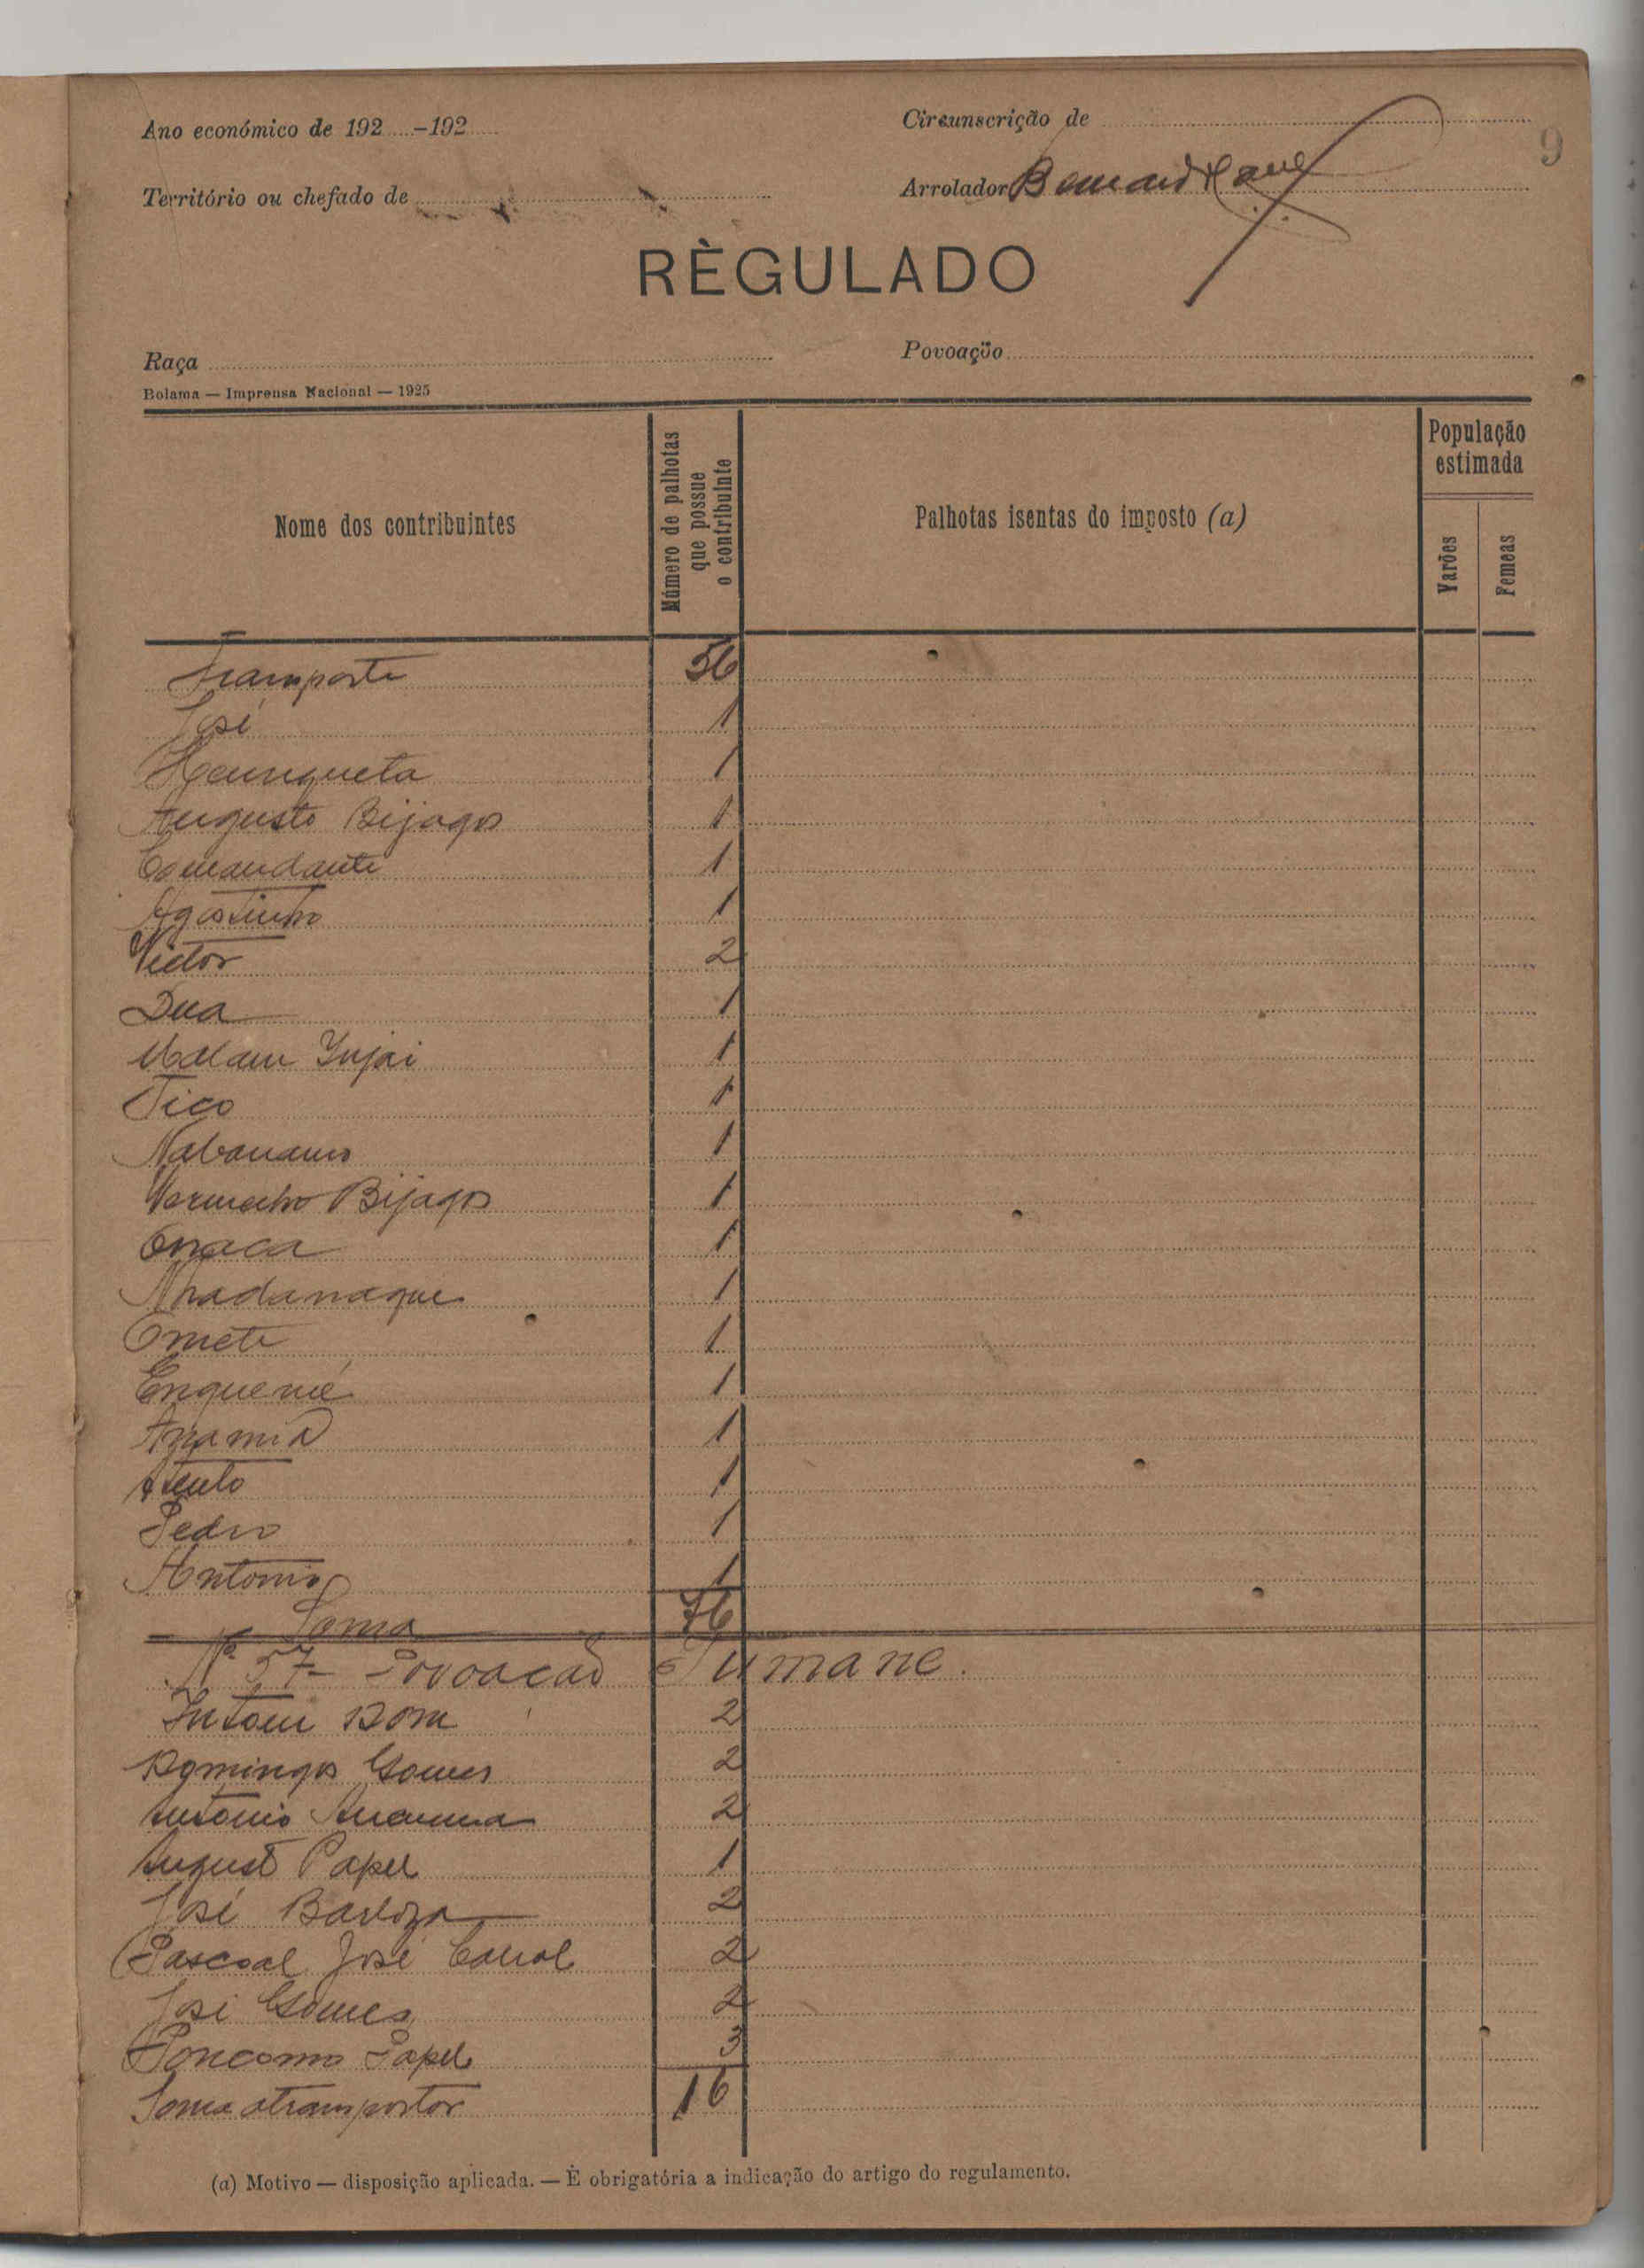 9
Ano económico de 192.....-192.....
Circunscrição de
Território ou chefado de
Arrolador
RÈGULADO
Raça
Povoação
Bolama — Imprensa Nacional — 1925
Nome dos contribuintes
Número de palhotas que possue o contribuinte
Palhotas isentas do imposto (a)
População estimada
Varões
Femeas
Transporte 56
José 1
Henriqueta 1
Augusto Bijagos 1
Comandante 1
Agostinho 1
Victor 2
Dua 1
Malam Injai 1
Tico 1
1
Vermelho Bijagos 1
Onaca 1
Nhadanaque 1
Omete 1
Enquemé 1
1
1
Pedro 1
Antonio 1
Soma 76
Nº 57- Povoacão Tumane.
Intoni Dom 2
Domingos Gomes 2
Antonio 2
August Papel 1
José Barboza 2
Pascoal José Cabral 2
José Gomes 2
Papel 3
Soma atransportar 16
(a) Motivo — disposição aplicada. — È obrigatória a indicação do artigo do regulamento.